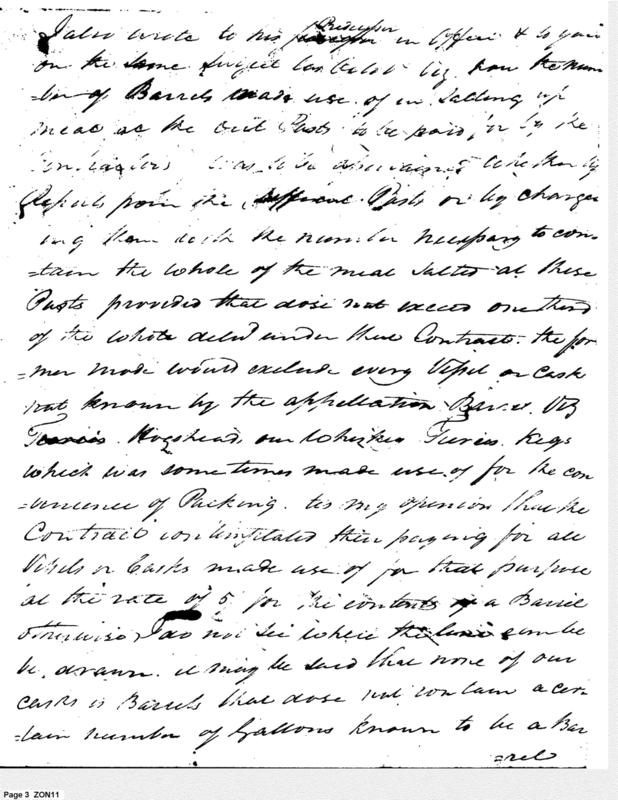 I also wrote to his Predecessor in Office & to you
on the same subject viz. how the num
=ber of Barrels made use of in Salting up
meat at the out Posts to be paid for by the
Contractors was to be ascertained whether by
Reports from the Posts or by charge
ing them with the number necessary to con=
=tain the whole of the meat salted at these
Posts provided that dose not exceed one third
of the whole deliv'd under that Contract. the for
=mer mode would exclude every Vessel or Cask
not known by the appellation Barrel. Viz
Tierces. Hogsheads, our Whiskey Tierces. Kegs
which was some times made use of for the con
=venience of Packing. tis my opinion that the
Contract contemplated their paying for all
Vessels or Casks made use of for that purpose
at the rate of 5 for the contents of a Barrel
otherwise I do not see where the line can be
be, drawn. it may be said that none of our
casks is Barrels that dose not contain a cer
=tain number of Gallons known to be a Bar
=rel
Page 3 ZON11